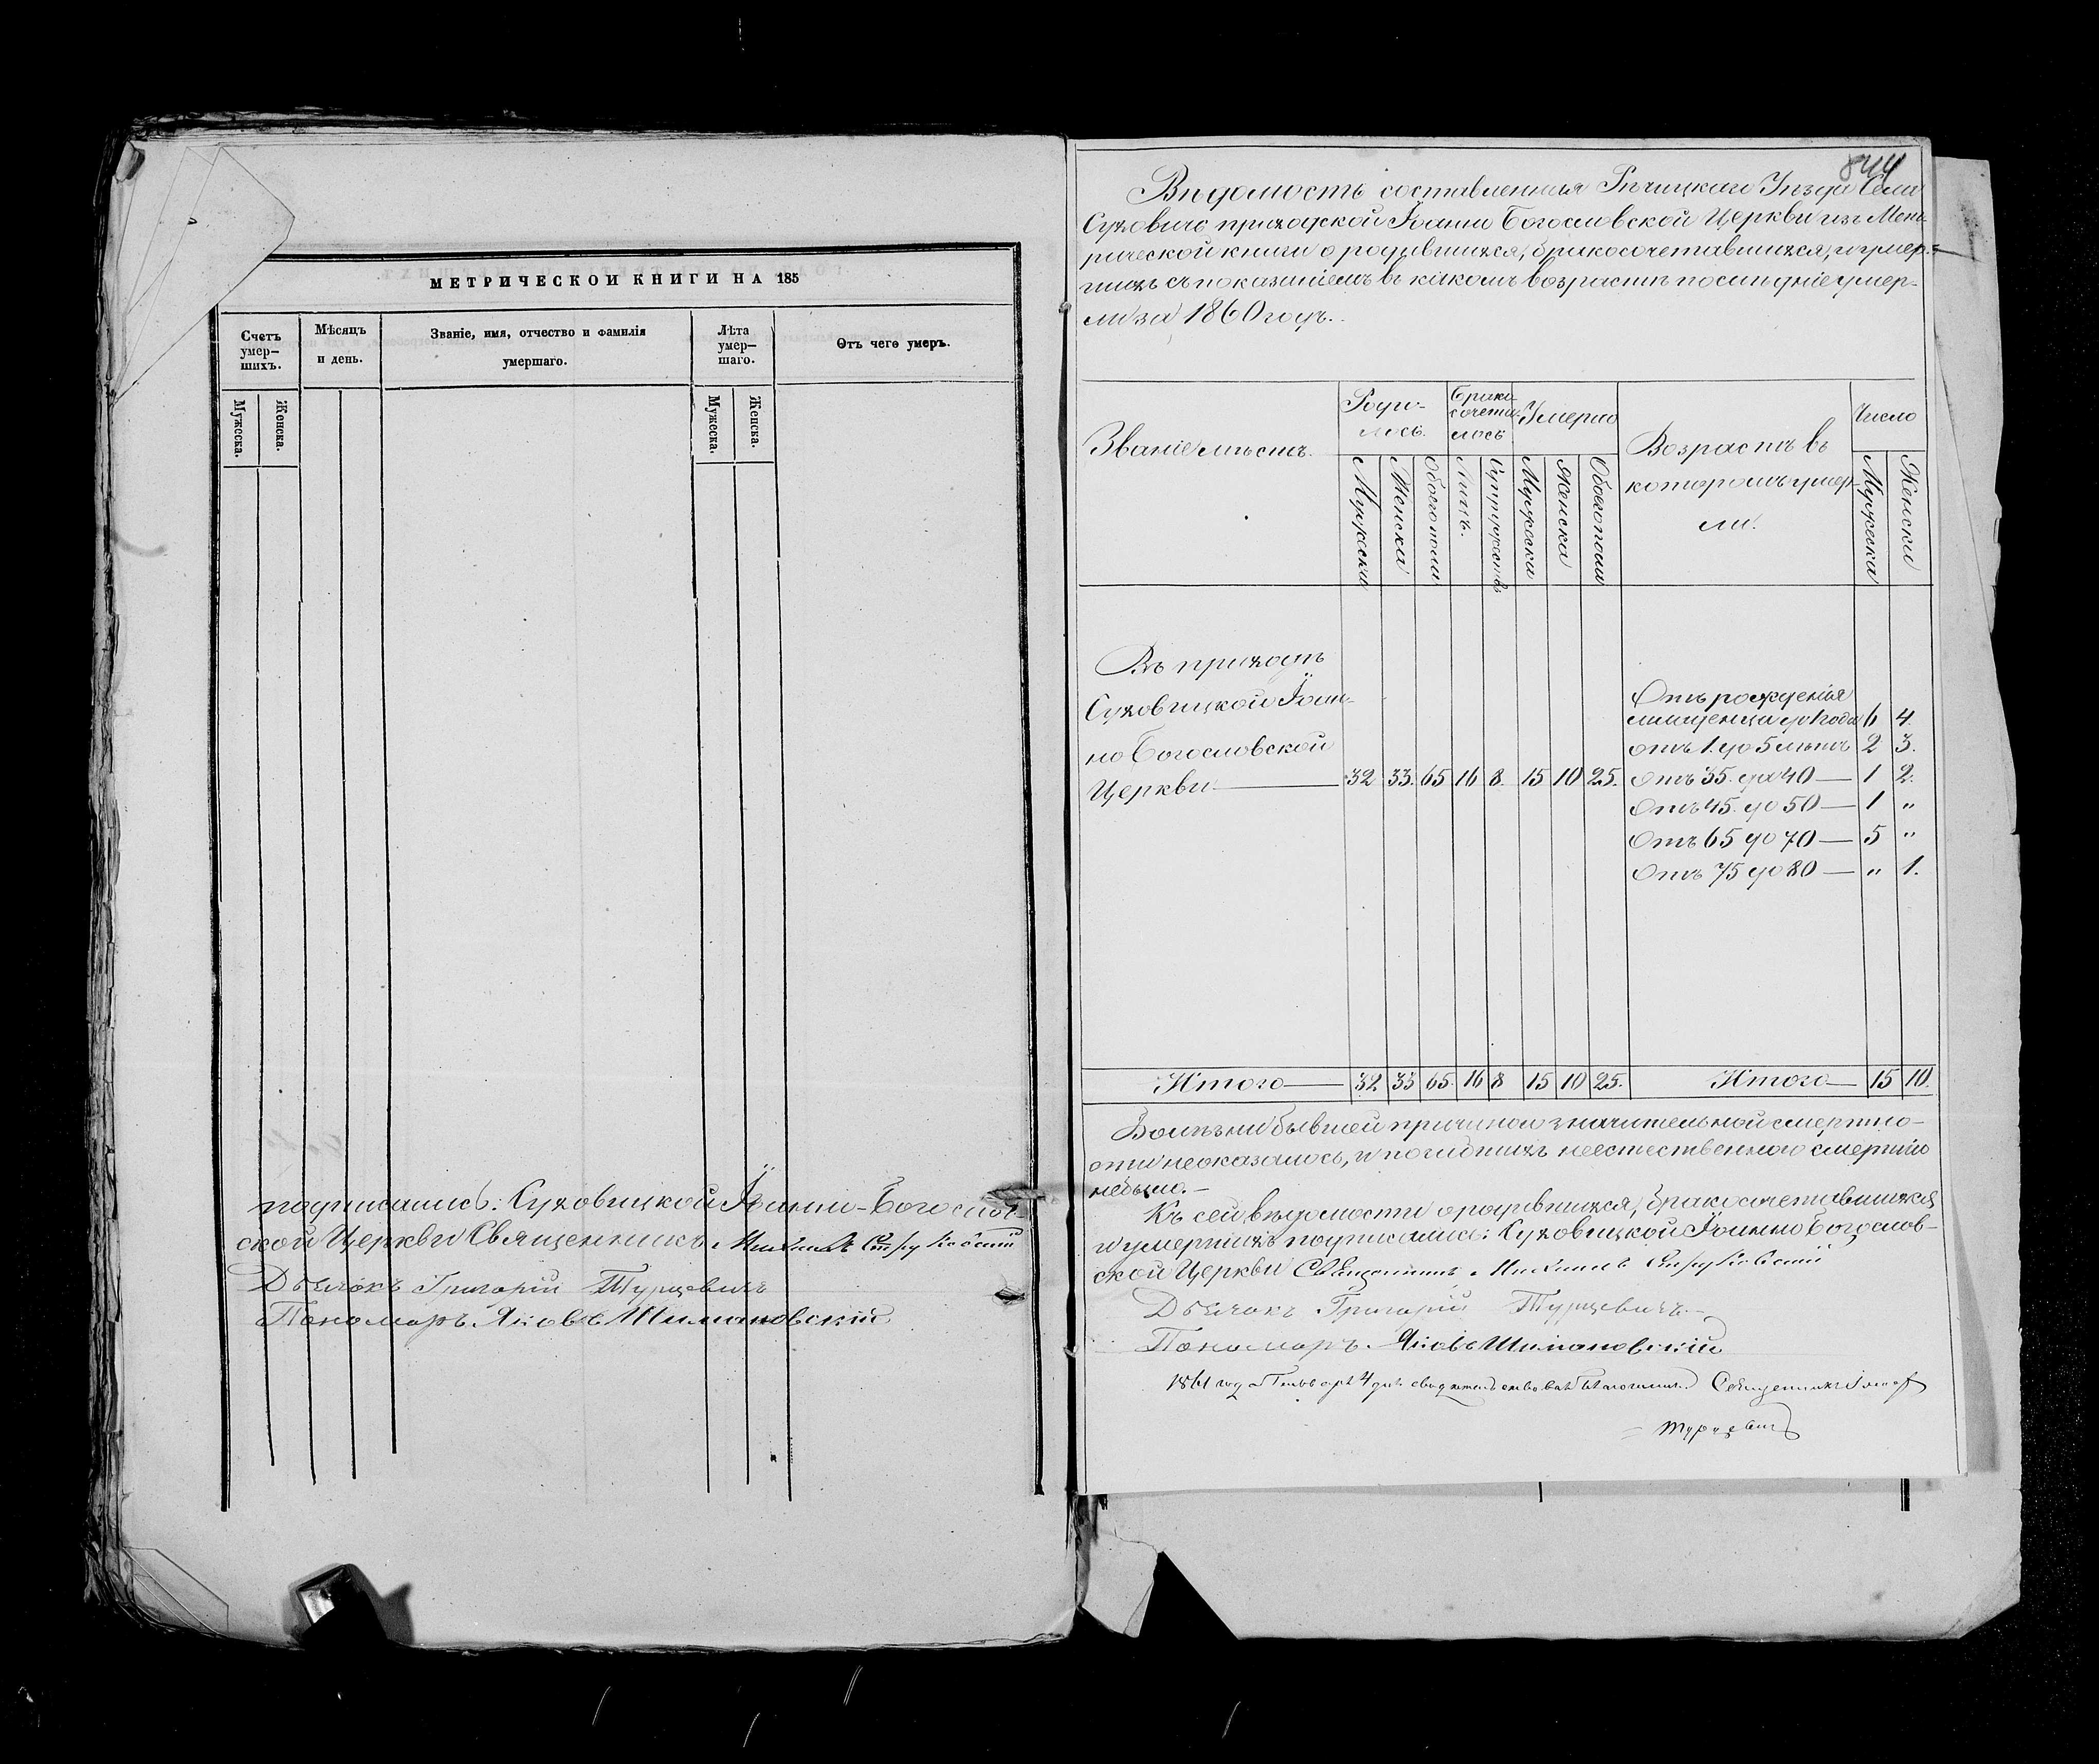 МЕТРИЧЕСКОЙ КНИГИ НА 185
Счетъ умер- шихъ.
Мѣсяцъ и день.
Званіе, имя, отчество и фамилія умершаго.
Лѣта умер- шаго.
Отъ чего умеръ.
Мужеска.
Женска.
Мужеска.
Женска.
подписались: Суховицкой Іоанно-Богослов-
ской Церкви Священникъ Михаилъ
Дьячокъ Григорій Турцевичъ
Пономарь Яковъ Шимановскій
844
Вѣдомость составленная Рѣчицкаго Уѣзда Села
Суховичь приходской Іоанно Богословской Церкви изъ Мет-
рической книги о родившихся, бракосочетавшихся, и умер-
шихъ съ показаніемъ въ какомъ возрастѣ послѣдніе умер-
ли за 1860 годъ.
Званіе мѣстъ.
Роди- лось.
Брако- сочета- лось
Умерло
Возрастъ въ которомъ умер- ли.
Число
Мужеска
Женска
Обоего пола
Лицъ.
Супружествъ
Мужеска
Женска
Обоего пола
Мужеска
Женска
Въ приходѣ
Суховицкой Іоан-
но Богословской
Церкви — 32 33. 65 16 8. 15 10 25.
Отъ рожденія
младенца до 1 года 6 4.
отъ 1. до 5 лѣтъ 2 3.
Отъ 35. до 40 — 1 2.
Отъ 45. до 50 — 1 "
Отъ 65 до 70 — 5 "
Отъ 75 до 80 — " 1.
Итого — 32 33 65. 16 8 15 10 25. Итого — 15 10.
Болѣзни бывшей причиною значительной смертно-
сти неоказалось, и погибшихъ неестественною смертію
небыло. —
Къ сей вѣдомости о родившихся, бракосочетавшихся
и умершихъ подписались: Суховицкой Іоанно Богослов-
ской Церкви Священникъ Михаилъ
Дьячокъ Григорій Турцевичъ
Пономарь Яковъ Шимановскій
1861 года Января 4 дня свидѣтельствовалъ Благочинный Священникъ
Турцевичъ